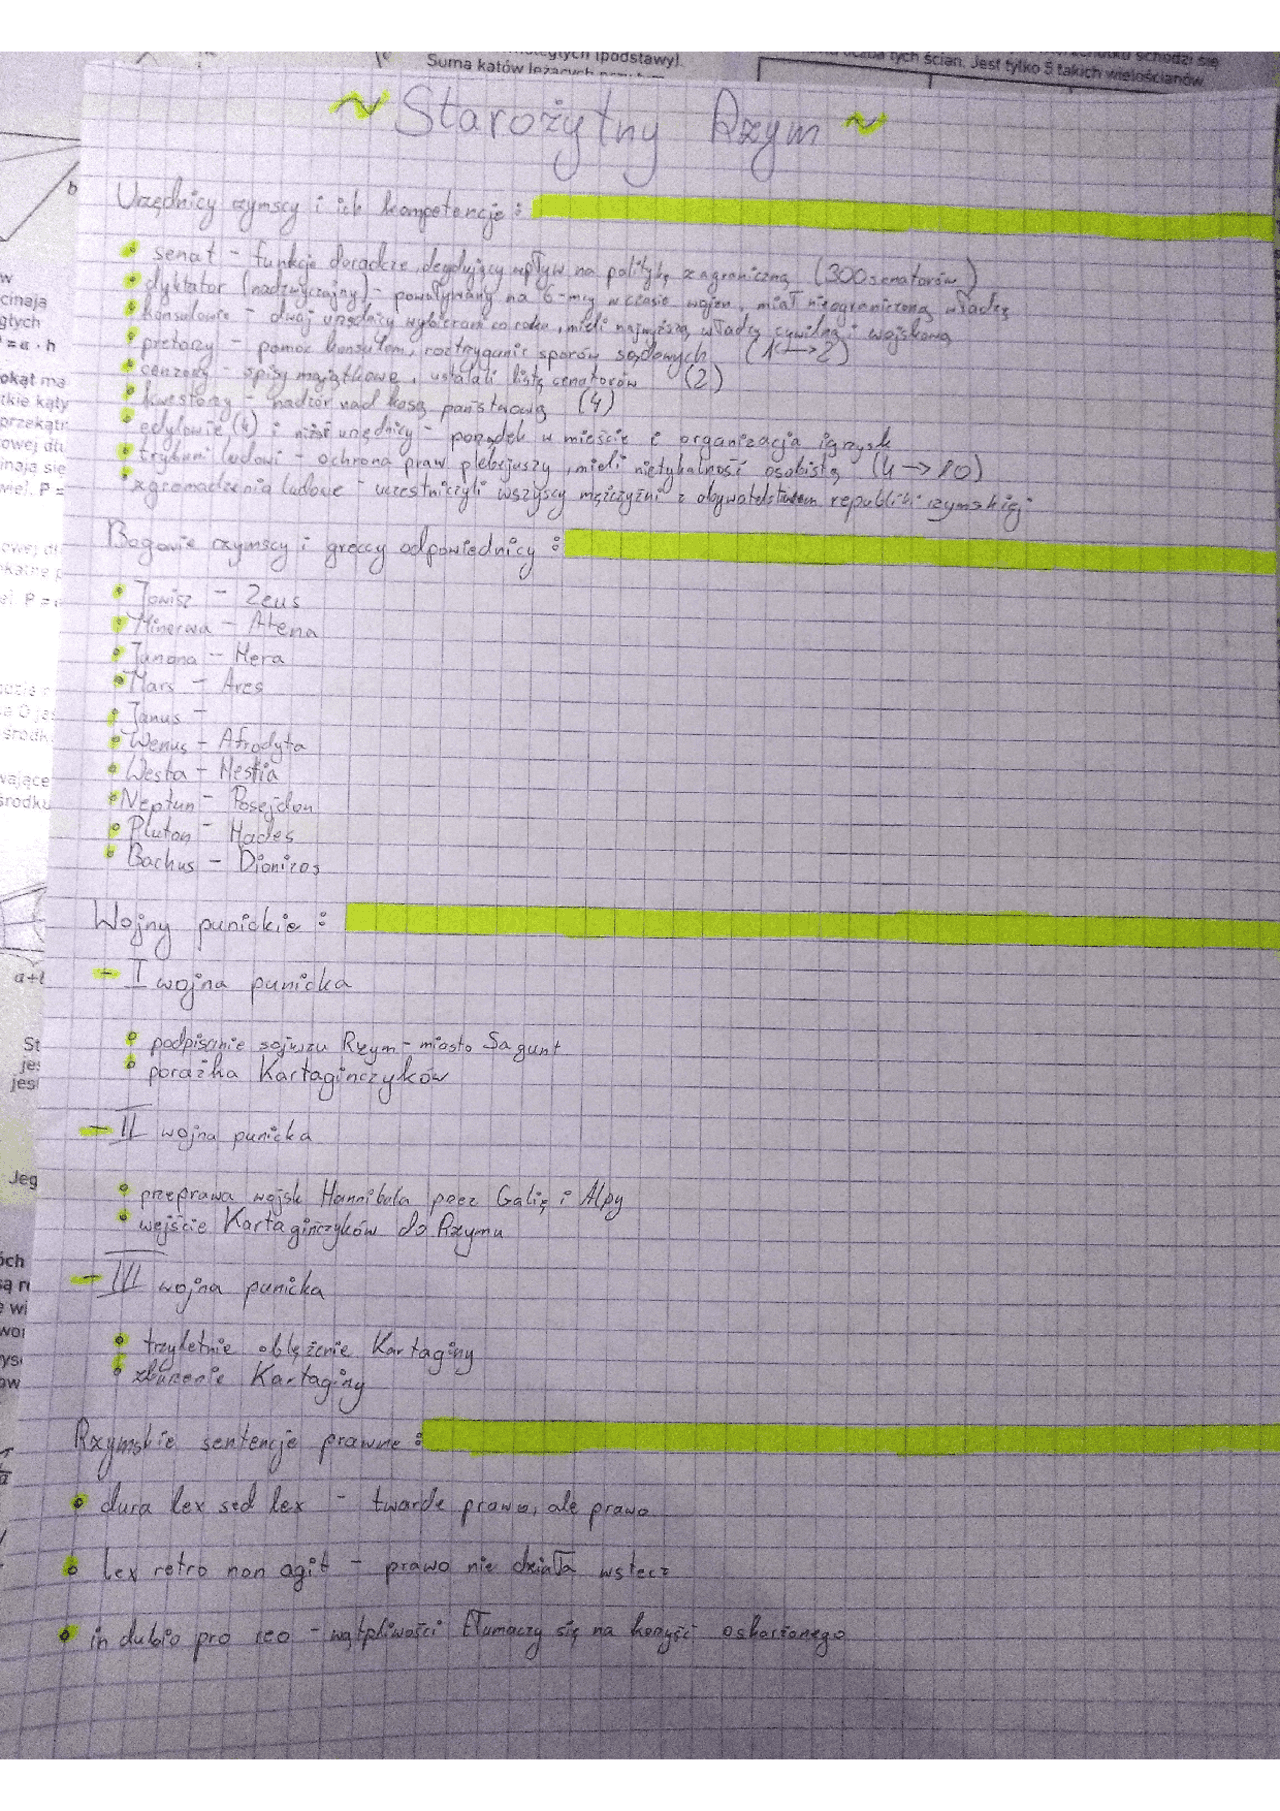 Suma kątów leżących
tych ścian. Jest tylko 5 takich wielościanów
~ Starożytny Rzym ~
b
Urzędnicy rzymscy i ich kompetencje:
• senat - funkcje doradcze, decydujący wpływ na politykę zagraniczną (300 senatorów)
• dyktator (nadzwyczajny) - powoływany na 6-mcy w czasie wojen, miał nieograniczoną władzę
• konsulowie - dwaj urzędnicy wybierani co roku, mieli najwyższą władzę cywilną i wojskową
• pretorzy - pomoc konsulom, roztrzyganie sporów sądowych (1->2)
• cenzorzy - spisy majątkowe, ustalali listę senatorów (2)
• kwestorzy - nadzór nad kasą państwową (4)
• edylowie (4) i niżsi urzędnicy - porządek w mieście i organizacja igrzysk
• trybuni ludowi - ochrona praw plebejuszy, mieli nietykalność osobistą (4 -> 10)
• zgromadzenia ludowe - uczestniczyli wszyscy mężczyźni z obywatelstwem republiki rzymskiej
Bogowie rzymscy i greccy odpowiednicy:
• Jowisz - Zeus
• Minerwa - Atena
• Junona - Hera
• Mars - Ares
• Janus -
• Wenus - Afrodyta
• Westa - Hestia
• Neptun - Posejdon
• Pluton - Hades
• Bachus - Dionizos
Wojny punickie:
- I wojna punicka
• podpisanie sojuszu Rzym - miasto Sagunt
• porażka Kartagińczyków
- II wojna punicka
• przeprawa wojsk Hannibala przez Galię i Alpy
• wejście Kartagińczyków do Rzymu
- III wojna punicka
• trzyletnie oblężenie Kartaginy
• zburzenie Kartaginy
Rzymskie sentencje prawne:
• dura lex sed lex - twarde prawo, ale prawo
• lex retro non agit - prawo nie działa wstecz
• in dubio pro reo - wątpliwości tłumaczy się na korzyść oskarżonego